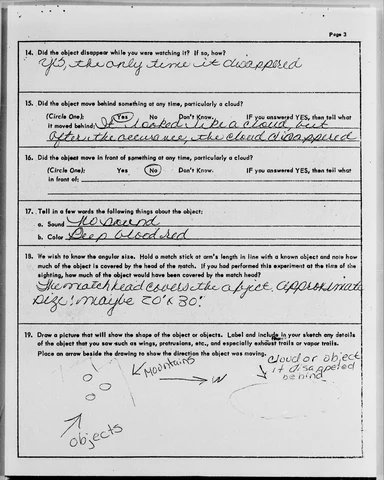 Page 3
14. Did the object disappear while you were watching it? If so, how?
Yes, the only time it disappered
15. Did the object move behind something at any time, particularly a cloud?
(Circle One): Yes No Don't Know. IF you answered YES, then tell what
it moved behind: It looked like a cloud, but
after the occurance, the cloud disappered
16. Did the object move in front of something at any time, particularly a cloud?
(Circle One): Yes No Don't Know. IF you answered YES, then tell what
in front of:
17. Tell in a few words the following things about the object:
a. Sound No sound
b. Color Deep blood red
18. We wish to know the angular size. Hold a match stick at arm's length in line with a known object and note how
much of the object is covered by the head of the match. If you had performed this experiment at the time of the
sighting, how much of the object would have been covered by the match head?
The match head covers the object. approximate
size: maybe 20' x 30'
19. Draw a picture that will show the shape of the object or objects. Label and include in your sketch any details
of the object that you saw such as wings, protrusions, etc., and especially exhaust trails or vapor trails.
Place an arrow beside the drawing to show the direction the object was moving.
Cloud or object
it disappered
behind
Mountains
W
objects